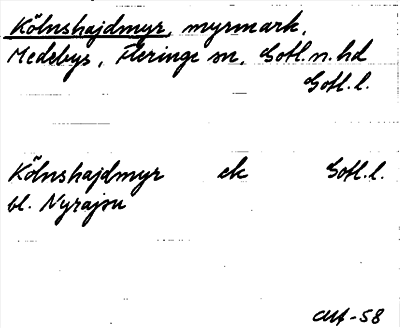 Kölnshajdmyr, myrmark,
Medebys, Fleringe sn, Gotl. n. hd
Gotl. l.
Kölnshajdmyr ek Gotl. l.
bl. Nyrajsu
-58